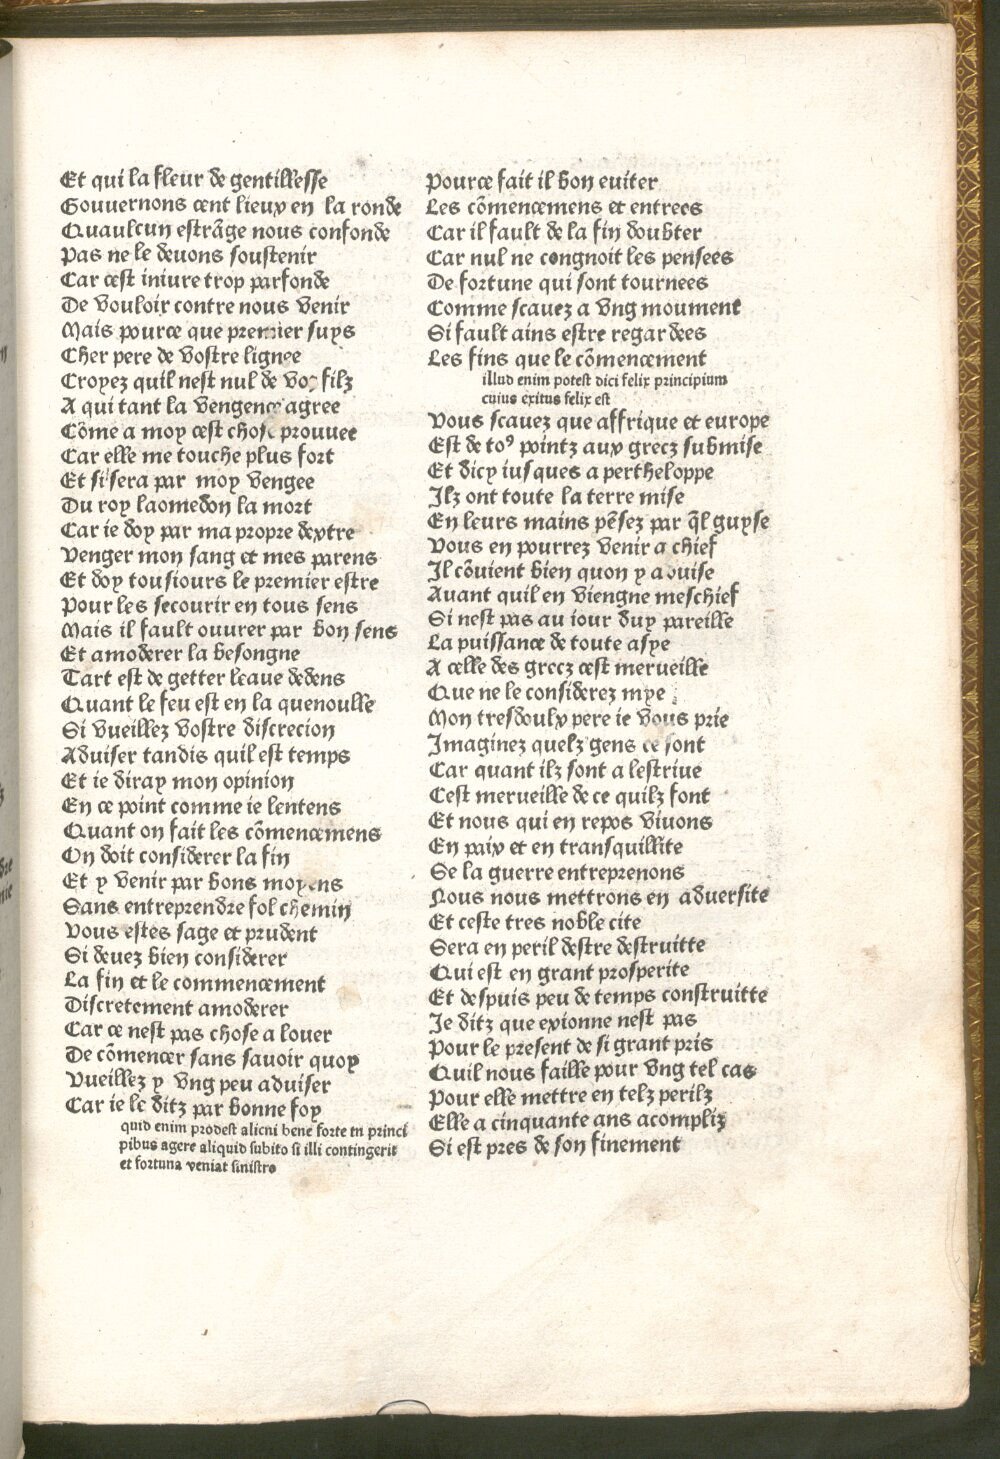 Et qui la fleur de gentillesse
Gouuernons cent lieux en la ronde
Quaulcun estrãge nous confonde
Pas ne le deuons soustenir
Car cest iniure trop parfonde
De vouloir contre nous venir
Mais pource que premier suys
Cher pere de vostre lignee
Croyez quil nest nul de voz filz
A qui tant la vengence agree
Cõme a moy cest chose prouuee
Car elle me touche plus fort
Et si sera par moy vengee
Du roy laomedon la mort
Car ie doy par ma propre dextre
Venger mon sang et mes parens
Et doy tousiours le premier estre
Pour les secourir en tous sens
Mais il fault ouurer par bon sens
Et amoderer la besongne
Tart est de getter leaue dedens
Quant le feu est en la quenoulle
Si vueillez vostre discrecion
Aduiser tandis quil est temps
Et ie diray mon opinion
En ce point comme ie lentens
Quant on fait les cõmencemens
On doit considerer la fin
Et y venir par bons moyens
Sans entreprendre fol chemin
Vous estes sage et prudent
Si deuez bien considerer
La fin et le commencement
Discretement amoderer
Car ce nest pas chose a louer
De cõmencer sans sauoir quoy
Vueillez y vng peu aduiser
Car ie le ditz par bonne foy
quid enim prodest alicni bene forte in princi
pibus agere aliquid subito si illi contingerit
et fortuna veniat sinistro
Pource fait il bon euiter
Les cõmencemens et entrees
Car il fault de la fin doubter
Car nul ne congnoit les pensees
De fortune qui sont tournees
Comme scauez a vng moument
Si fault ains estre regardees
Les fins que le cõmencement
illud enim potest dici felix principium
cuius exitus felix est
Vous scauez que affrique et europe
Est de toꝰ pointz aux grecz submise
Et dicy iusques a pertheloppe
Ilz ont toute la terre mise
En leurs mains pẽsez par q̃l guyse
Vous en pourrez venir a chief
Il cõuient bien quon y aduise
Auant quil en viengne meschief
Si nest pas au iour duy pareille
La puissance de toute asye
A celle des grecz cest merueille
Que ne le considerez mye
Mon tresdoulx pere ie vous prie
Imaginez quelz gens ce sont
Car quant ilz sont a lestriue
Cest merueille de ce quilz font
Et nous qui en repos viuons
En paix et en transquillite
Se la guerre entreprenons
Nous nous mettrons en aduersite
Et ceste tres noble cite
Sera en peril destre destruitte
Qui est en grant prosperite
Et despuis peu de temps construitte
Je ditz que exionne nest pas
Pour le present de si grant pris
Quil nous faille pour vng tel cas
Pour elle mettre en telz perilz
Elle a cinquante ans acompliz
Si est pres de son finement